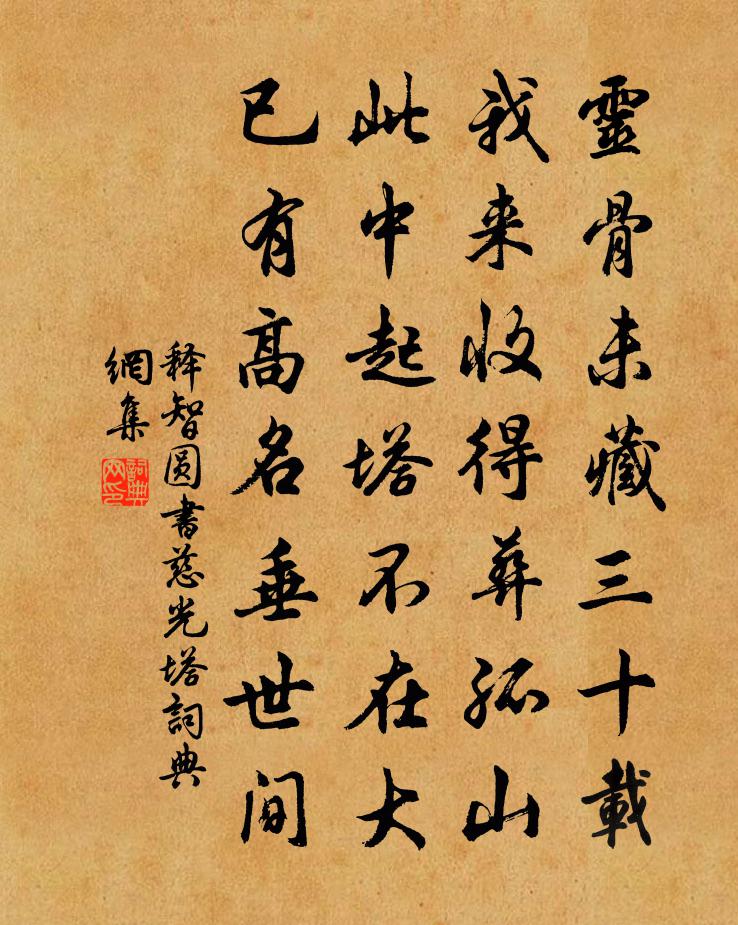 靈骨未藏三十載
我来收得葬孤山
此中起塔不在大
已有高名垂世间
释智圆書慈光塔詞典
網集
詞典网印